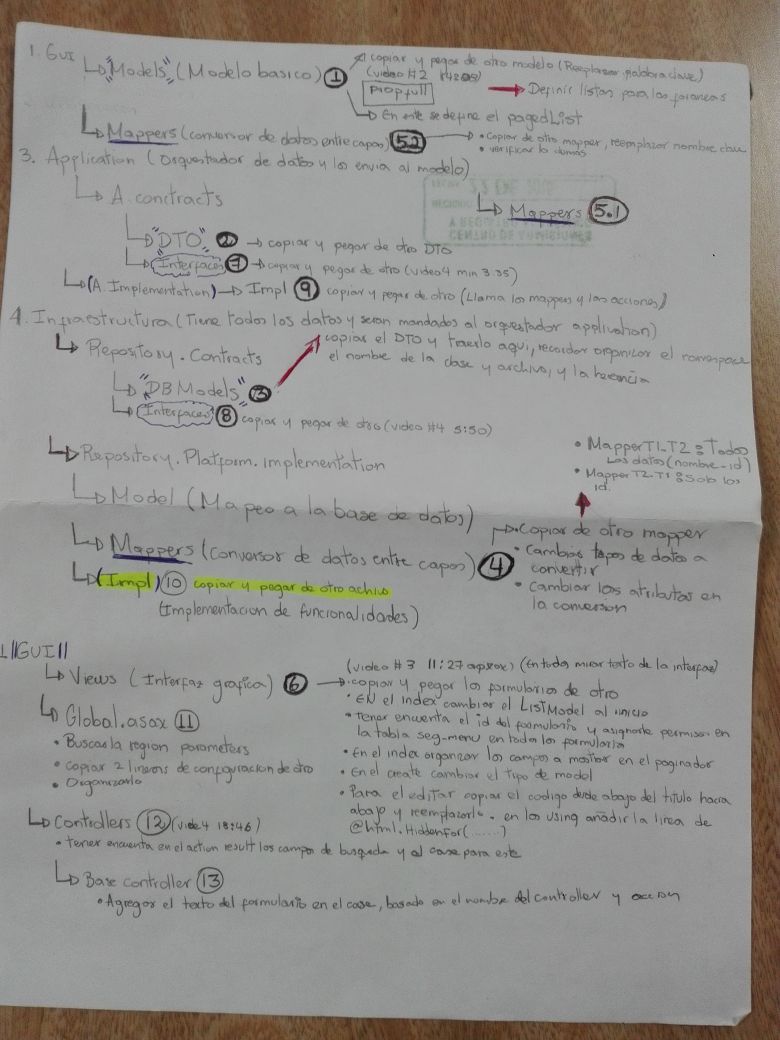 1. GUI
"Models" (Modelo basico) 1
copiar y pegar de otro modelo (Reemplazar palabra clave)
(video #2
propfull
Definir listas para las foraneas
En este se define el pagedList
Mappers (conversor de datos entre capas) 5.2
• Copiar de otro mapper, reemplazar nombre clave
• verificar lo demas
3. Application (Orquestador de datos y los envia al modelo)
A. contracts
Mappers 5.1
"DTO" 2 copiar y pegar de otro DTO
Interfaces 7 copiar y pegar de otro (video 4 min 3:35)
(A. Implementation) Impl 9 copiar y pegar de otro (Llama los mappers y las acciones)
4. Infraestructura (Tiene todos los datos y seran mandados al orquestador application)
Repository. Contracts
copiar el DTO y traerlo aqui, recordar organizar el namespace
el nombre de la clase y archivo, y la herencia
"DB Models" 3
Interfaces 8 copiar y pegar de otro (video #4 5:50)
Repository. Platform. implementation
• Mapper T1-T2 : Todos
Los datos (nombre-id)
• Mapper T2-T1 : Solo los
id.
Model (Mapeo a la base de datos)
Mappers (conversor de datos entre capas) 4
Copiar de otro mapper
• Cambiar tipos de datos a
convertir
• Cambiar los atributos en
la conversion
(Impl) 10 copiar y pegar de otro achivo
(Implementacion de funcionalidades)
1 ||GUI||
Views (Interfaz grafica) 6
(video #3 11:27 aprox) (En todos mirar texto de la interfaz)
copiar y pegar los formularios de otro
• EN el index cambiar el ListModel al inicio
• Tener encuenta el id del formulario y asignarle permisos en
la tabla seg-menu en todos los formularios
• En el index organizar los campos a mostrar en el paginador
• En el create cambiar el tipo de model
• Para el editar copiar el codigo desde abajo del titulo hacia
abajo y reemplazarlo. en los using añadir la linea de
@html.HiddenFor(......)
Global.asax 11
• Buscar la region parameters
• copiar 2 lineas de configuracion de otro
• Organizarlo
Controllers 12 (vide4 18:46)
• tener encuenta en el action result los campos de busqueda y el case para este
Base controller 13
• Agregar el texto del formulario en el case, basado en el nombre del controller y accion